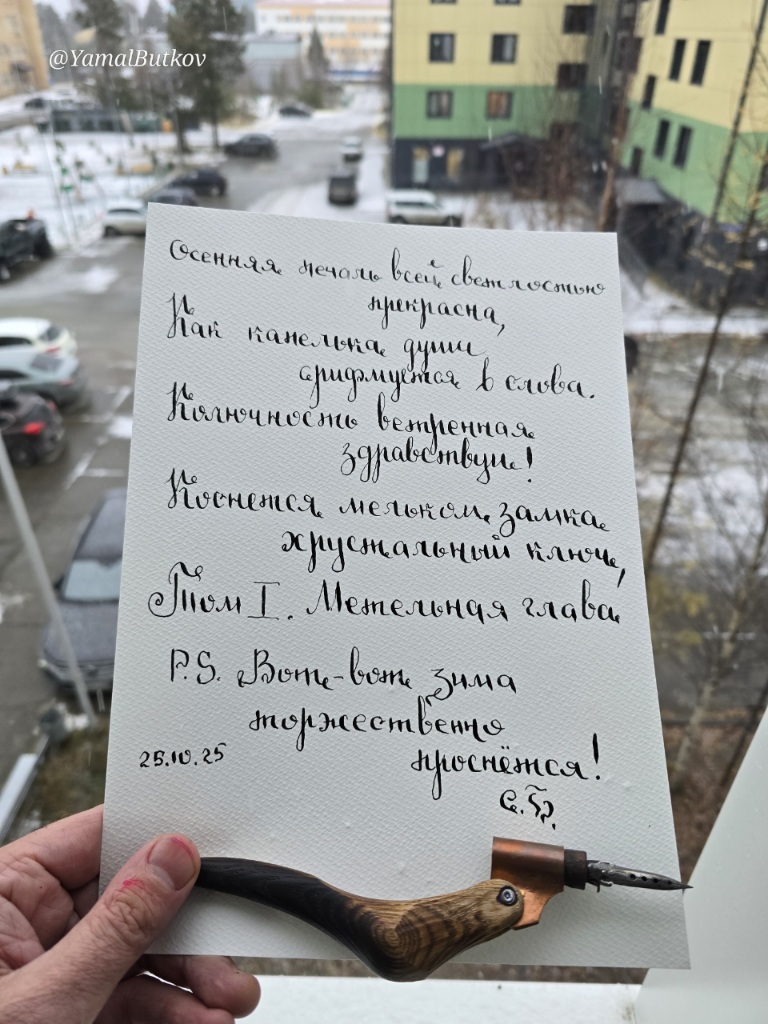 @YamalButkov
Осенняя печаль всей светлостью
прекрасна,
Как капелька души
рифмуется в слова.
Колючность ветренная
здравствуй!
Коснется мельком замка
хрустальный ключ,
Том I. Метельная глава
P.S. Вот-вот зима
торжественно
проснётся!
25.10.25
С.Б.